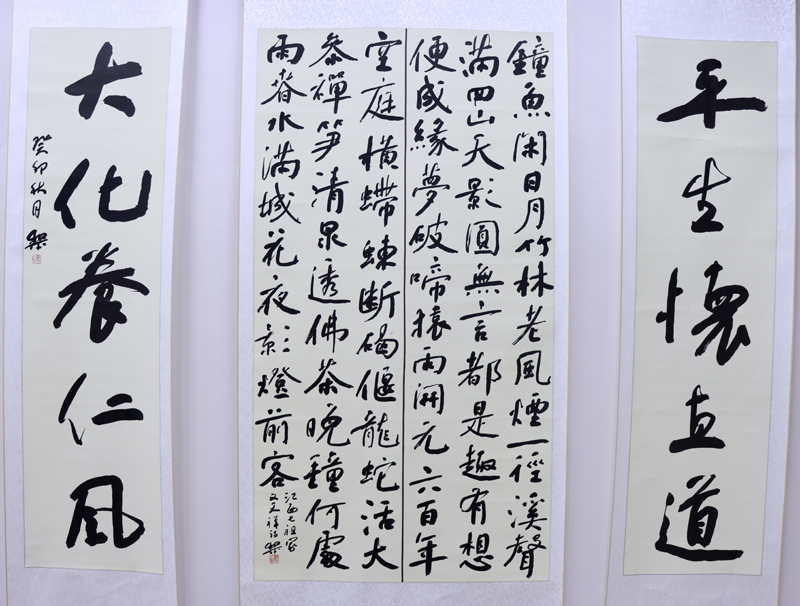 平生懷直道
鐘魚閑日月竹林老風煙一徑溪聲
滿四山天影圓無言都是趣有想
便成緣夢破啼猿雨開元六百年
空庭橫螮蝀斷碣偃龍蛇活大
參禪笋清泉透佛茶晚鐘何處
雨春水滿城花夜影燈前客
江西七祖家
文天祥詩
大化養仁風
癸卯秋月